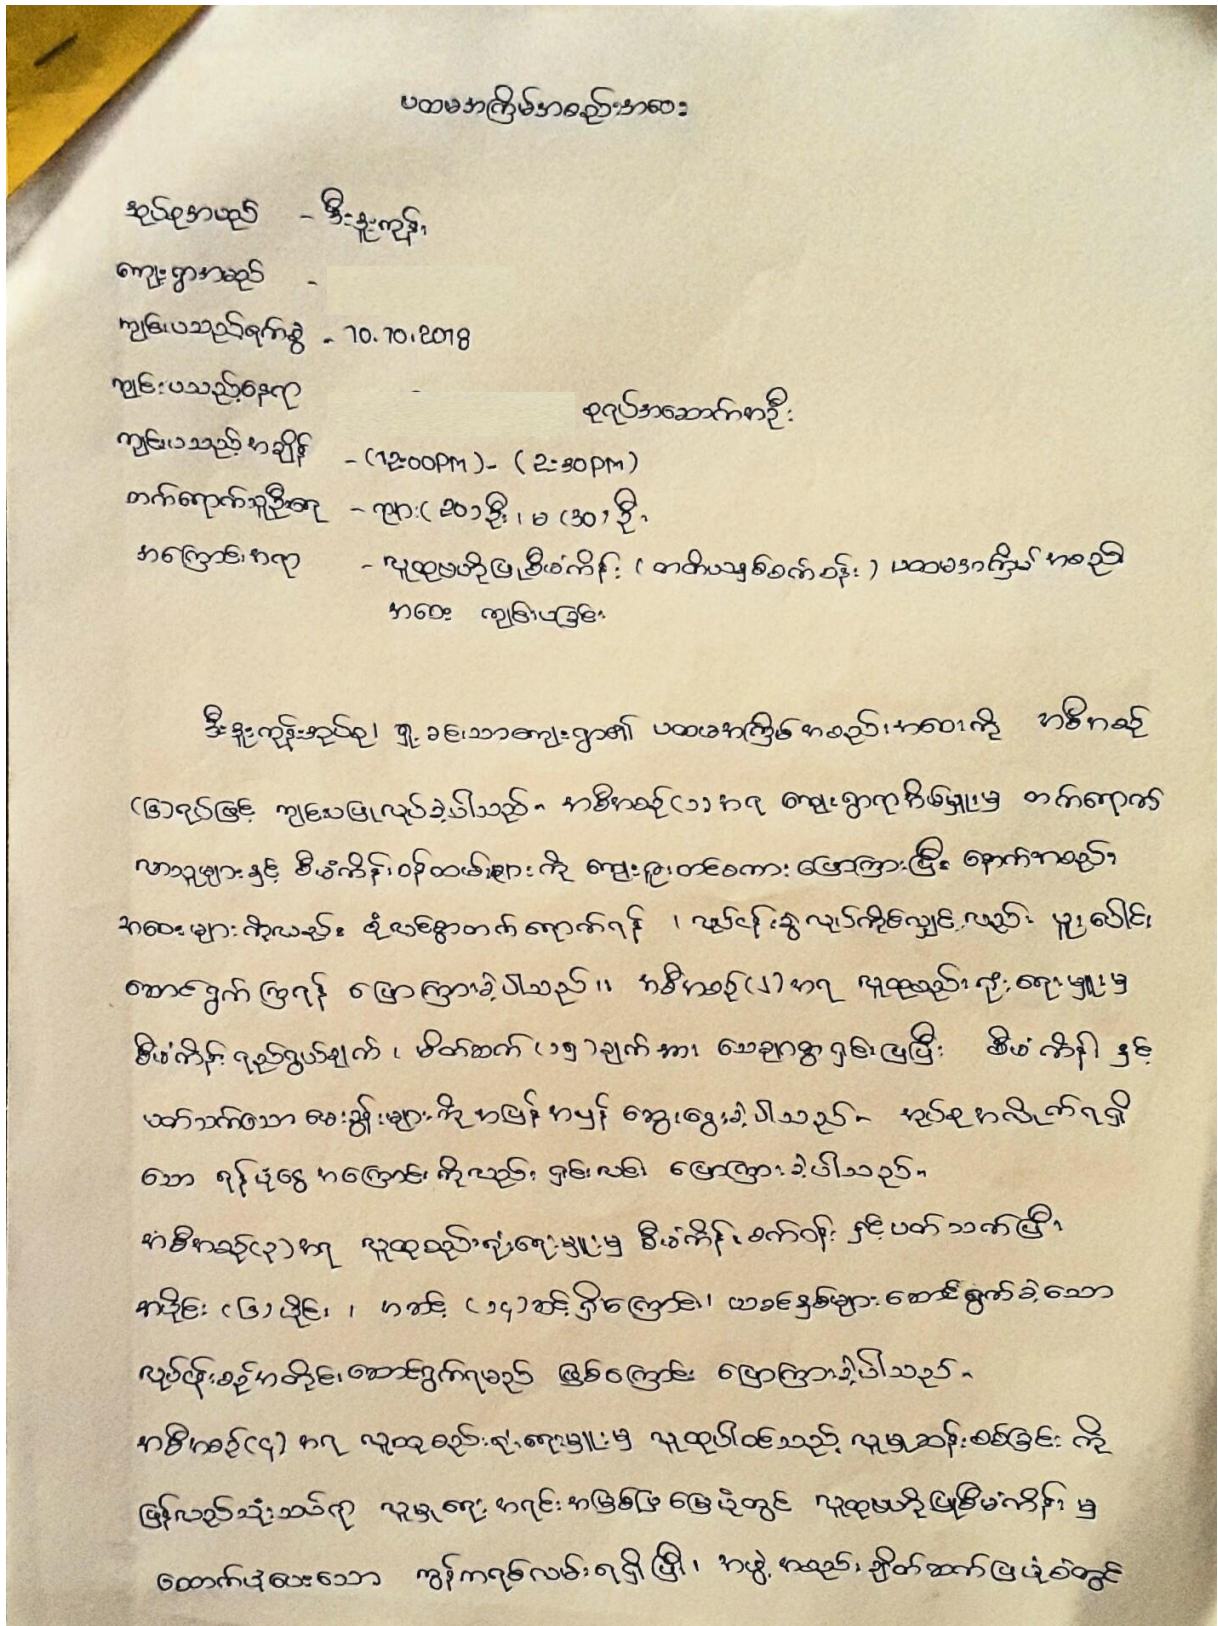 ပထမအကြိမ်အစည်းအဝေး
အုပ်စုအမည် - ဒီးဒူးကုန်း
ကျေးရွာအမည် -
ကျင်းပသည့်ရက်စွဲ - 10.10.2018
ကျင်းပသည့်နေရာ -
စုရပ်အဆောက်အဦး
ကျင်းပသည့်အချိန် - (12:00PM) - (2:30PM)
တက်ရောက်သူဦးရေ - ကျား(20)ဦး၊ မ(30)ဦး
အကြောင်းအရာ - လူထုဗဟိုပြုစီမံကိန်း (တတိယနှစ်စက်ဝန်း) ပထမအကြိမ် အစည်း
အဝေး ကျင်းပခြင်း
ဒီးဒူးကုန်းအုပ်စု၊ ကျေးရွာ၏ ပထမအကြိမ်အစည်းအဝေးကို အစီအစဉ်
(၆)ရပ်ဖြင့် ကျင်းပပြုလုပ်ခဲ့ပါသည်။ အစီအစဉ်(၁)အရ ကျေးရွာရာအိမ်မှူးမှ တက်ရောက်
လာသူများနှင့် စီမံကိန်းဝန်ထမ်းများကို ကျေးဇူးတင်စကားပြောကြားပြီး နောက်အစည်း
အဝေးများကိုလည်း စုံလင်စွာတက်ရောက်ရန် ၊ လုပ်ငန်းခွဲလုပ်ကိုင်လျှင်လည်း ပူးပေါင်း
ဆောင်ရွက်ကြရန် ပြောကြားခဲ့ပါသည်။ အစီအစဉ်(၂)အရ လူထုစည်းရုံးရေးမှူးမှ
စီမံကိန်းရည်ရွယ်ချက် ၊ မိတ်ဆက်(၁၅)ချက်အား သေချာစွာရှင်းပြပြီး စီမံကိန်း နှင့်
ပတ်သက်သော မေးခွန်းများကို အပြန်အလှန် ဆွေးနွေးခဲ့ပါသည်။ အုပ်စုအလိုက်ရရှိ
သော ရန်ပုံငွေအကြောင်းကိုလည်း ရှင်းလင်း ပြောကြားခဲ့ပါသည်။
အစီအစဉ်(၃)အရ လူထုစည်းရုံးရေးမှူးမှ စီမံကိန်းစက်ဝန်းနှင့်ပတ်သက်ပြီး
အပိုင်း(၆)ပိုင်း ၊ အဆင့်(၁၄)ဆင့်ရှိကြောင်း၊ ယခင်နှစ်များဆောင်ရွက်ခဲ့သော
လုပ်ငန်းစဉ်အတိုင်းဆောင်ရွက်ရမည် ဖြစ်ကြောင်း ပြောကြားခဲ့ပါသည်။
အစီအစဉ်(၄)အရ လူထုစည်းရုံးရေးမှူးမှ လူထုပါဝင်သည့် လူမှုဆန်းစစ်ခြင်းကို
ပြန်လည်သုံးသပ်ရာ လူမှုရေးအရင်းအမြစ်ပြမြေပုံတွင် လူထုဗဟိုပြုစီမံကိန်းမှ
ထောက်ပံ့ပေးသော ကွန်ကရစ်လမ်းရရှိပြီး၊ အဖွဲ့အစည်းချိတ်ဆက်ပြပုံစံတွင်